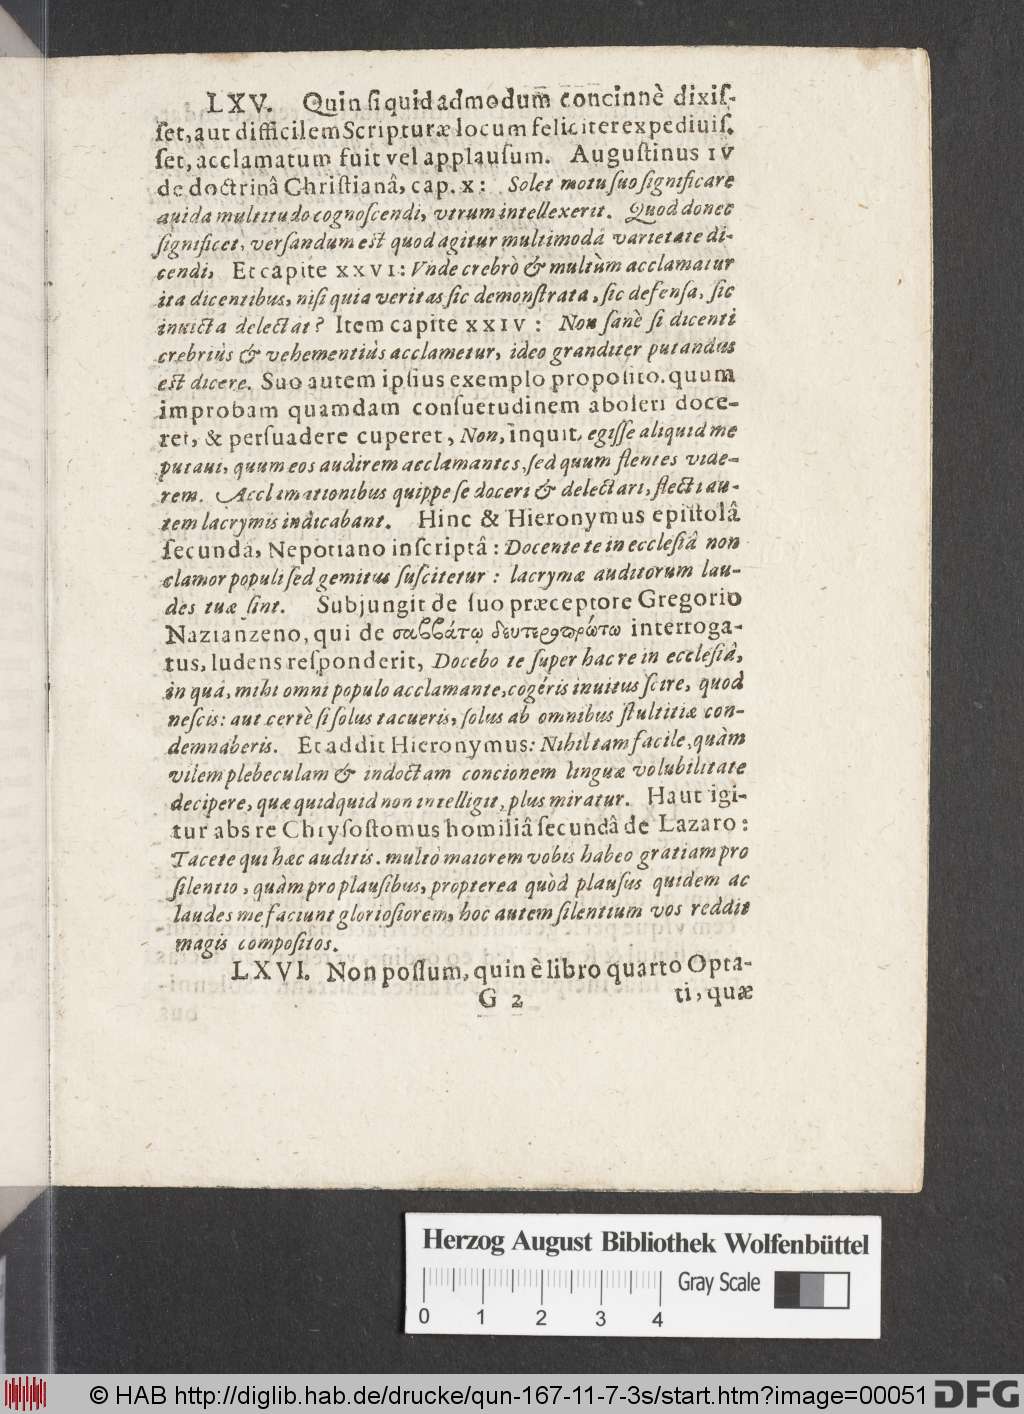 LXV. Quin siquid admodum̃ concinnè dixis-
set, aut difficilem Scripturæ locum feliciter expediuis-
set, acclamatum fuit vel applausum. Augustinus IV
de doctrinâ Christianâ, cap. X: Solet motu suo significare
auida multitudo cognoscendi, vtrum intellexerit. Quod donec
significet, versandum est quod agitur multimodâ varietate di-
cendi, Et capite XXVI: Vnde crebrò & multùm acclamatur
ita dicentibus, nisi quia veritas sic demonstrata, sic defensa, sic
inuicta delectat? Item capite XXIV: Non sanè si dicenti
crebriùs & vehementiùs acclametur, ideo granditer putandus
est dicere. Suo autem ipsius exemplo proposito. quum
improbam quamdam consuetudinem aboleri doce-
ret, & persuadere cuperet, Non, inquit, egisse aliquid me
putaui, quum eos audirem acclamantes, sed quum flentes vide-
rem. Acclamationibus quippe se doceri & delectari, flecti au-
tem lacrymis indicabant. Hinc & Hieronymus epistolâ
secundâ, Nepotiano inscriptâ: Docente te in ecclesiâ non
clamor populi sed gemitus suscitetur: lacrymæ auditorum lau-
des tuæ sint. Subjungit de suo præceptore Gregorio
Nazianzeno, qui de σαββάτῳ δευτεροπρώτω interroga-
tus, ludens responderit, Docebo te super hac re in ecclesiâ,
in quâ, mihi omni populo acclamante, cogéris inuitus scire, quod
nescis: aut certè si solus tacueris, solus ab omnibus stultitiæ con-
demnaberis. Et addit Hieronymus: Nihil tam facile, quàm
vilem plebeculam & indoctam concionem linguæ volubilitate
decipere, quæ quidquid non intelligit, plus miratur. Haut igi-
tur abs re Chrysostomus homiliâ secundâ de Lazaro:
Tacete qui hæc auditis. multò maiorem vobis habeo gratiam pro
silentio, quàm pro plausibus, propterea quòd plausus quidem ac
laudes me faciunt gloriosiorem, hoc autem silentium vos reddit
magis compositos.
LXVI. Non possum, quin è libro quarto Opta-
G 2 ti, quæ
Herzog August Bibliothek Wolfenbüttel
Gray Scale
0 1 2 3 4
© HAB http://diglib.hab.de/drucke/qun-167-11-7-3s/start.htm?image=00051 DFG